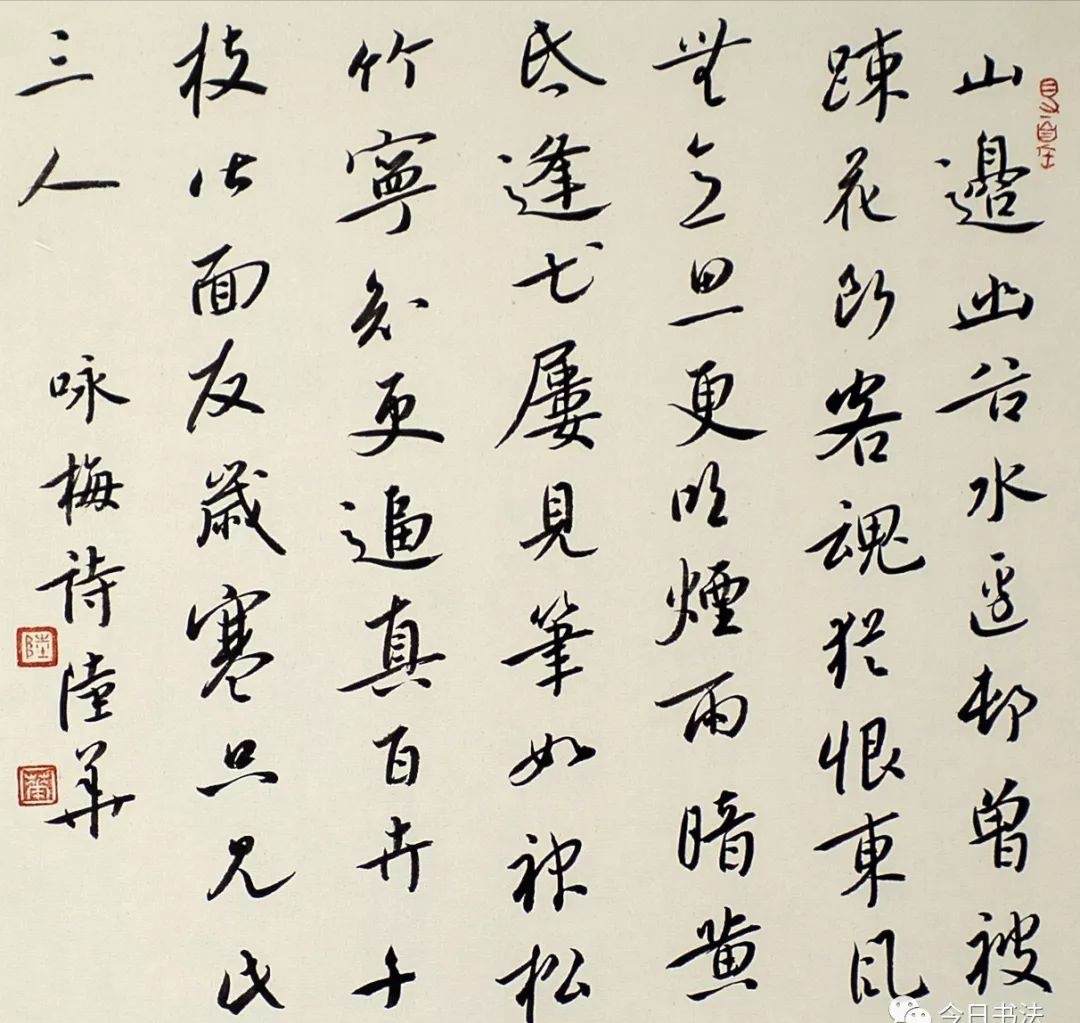 山邊幽谷水邊邨曾被
踈花斷客魂猶恨東風
無意思更吹煙雨暗黃
昏逢屢見筆如神松
竹寧知更逼真百卉千
枝面友歲寒只見此
三人
咏梅詩陸華
陸
華
今日书法